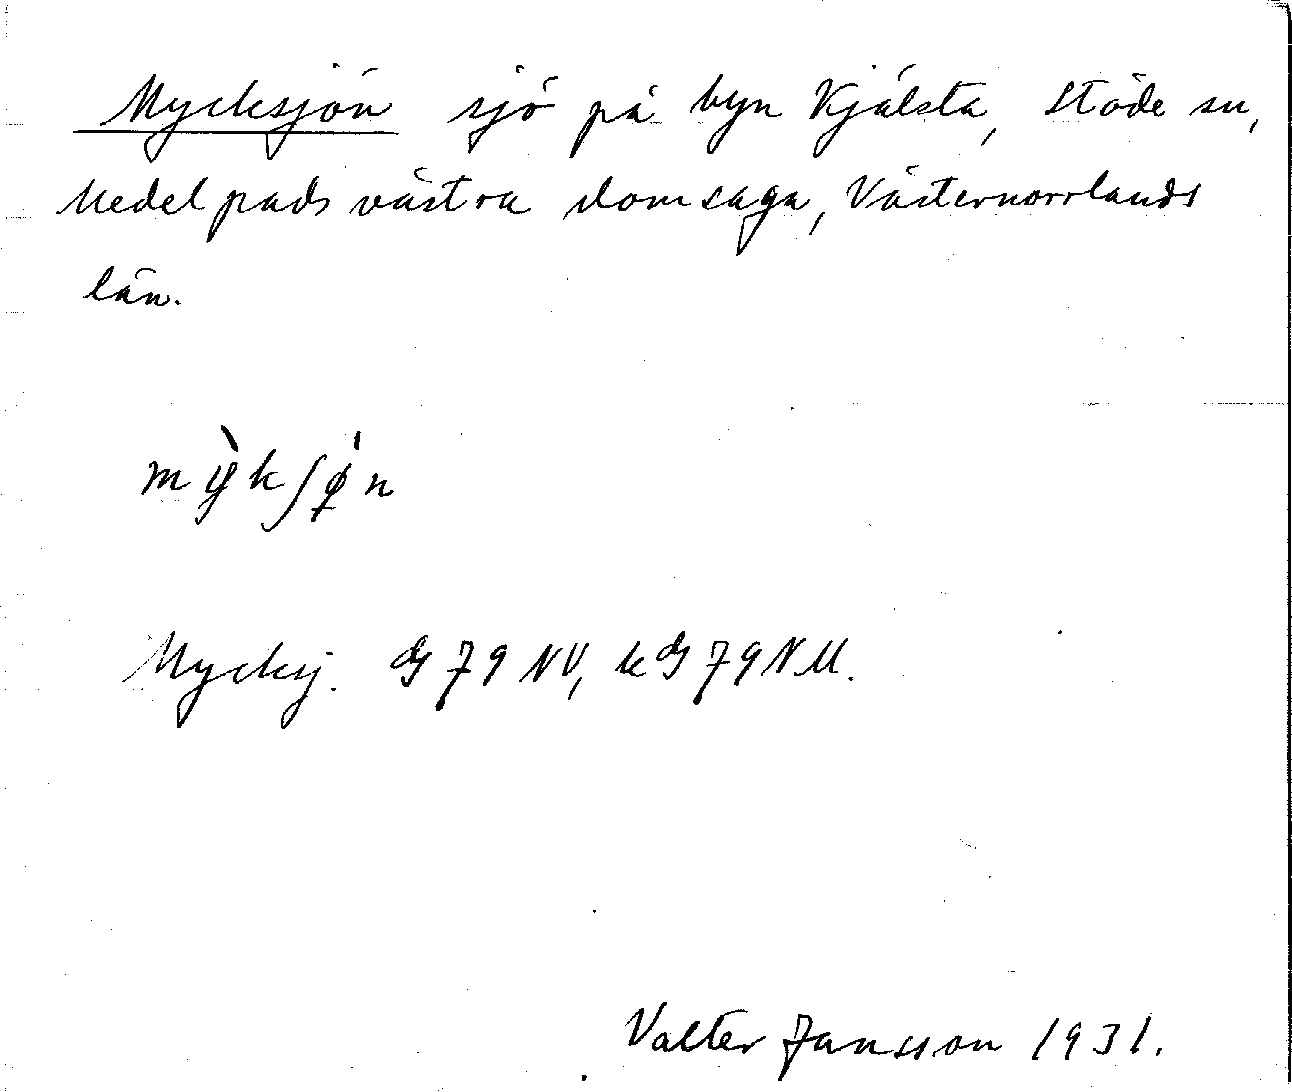 Mycksjön sjö på byn Kjälsta, Stöde sn,
Medelpads västra domsaga, Västernorrlands
län.
mỳkʃø̀n
Mycksj. G 79 NV, kG 79 NM.
Valter Jansson 1931.